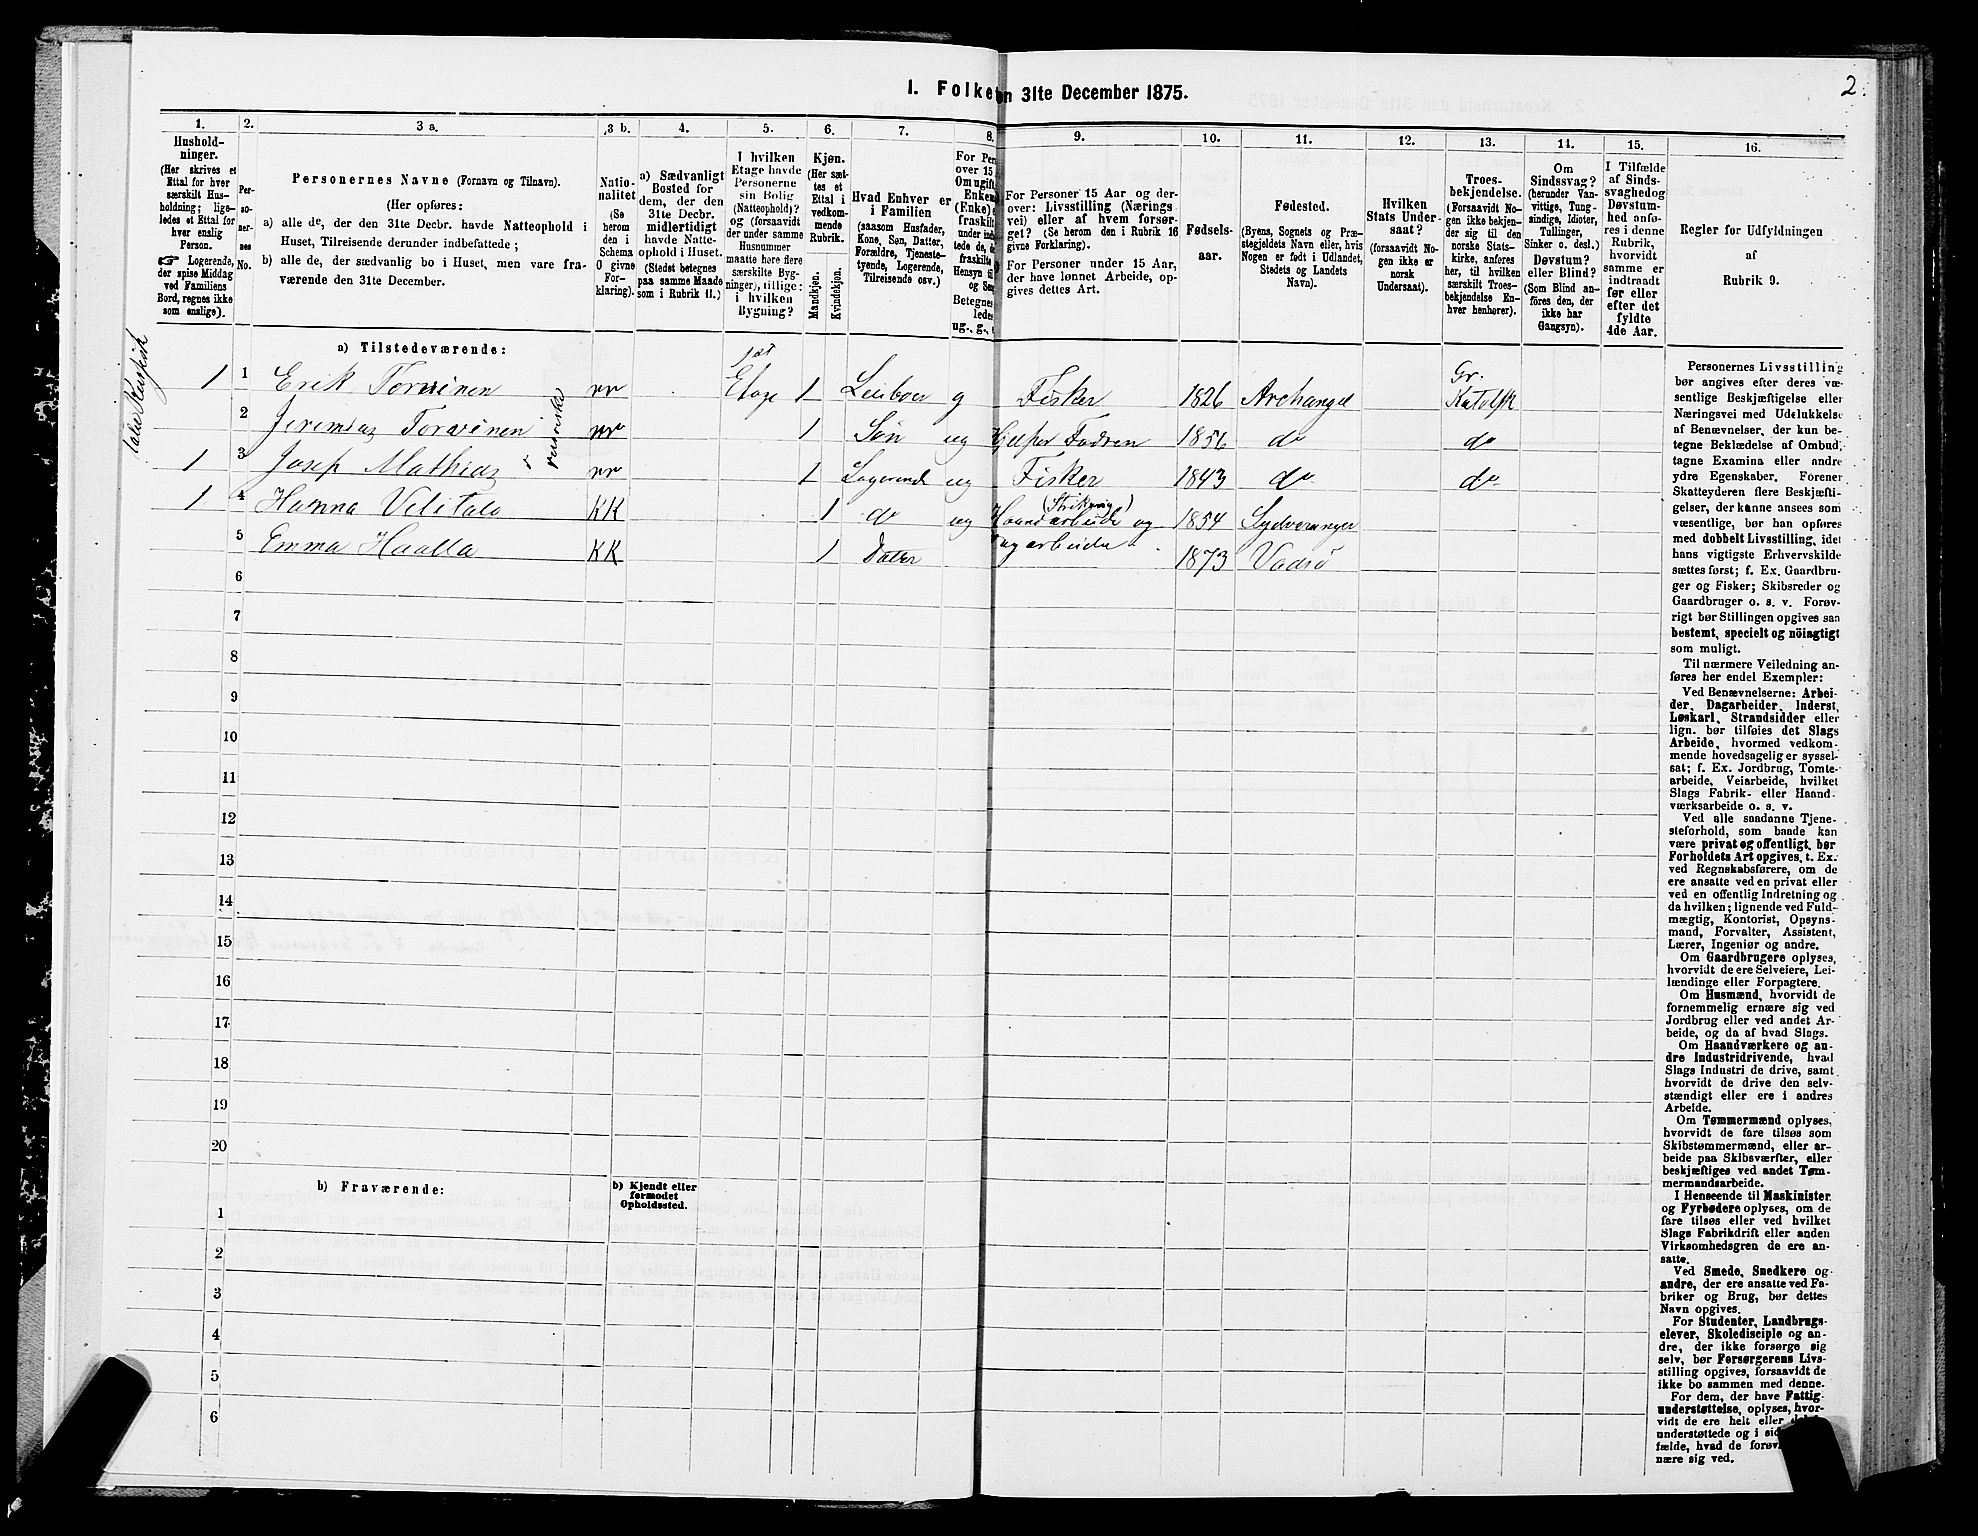 2
1. Folket
en 31te December 1875.
1.
Hushold-
ninger.
(Her skrives et
Ettal for hver
særskilt Hus-
holdning; lige-
ledes et Ettal for
hver enslig
Person.
Logerende,
der spise Middag
ved Familiens
Bord, regnes ikke
som enslige).
2.
Per-
so-
ner-
nes
No.
3 a.
Personernes Navne (Fornavn og Tilnavn).
(Her opføres:
a) alle de, der den 31te Decbr. havde Natteophold i
Huset, Tilreisende derunder indbefattede;
b) alle de, der sædvanlig bo i Huset, men vare fra-
værende den 31te December.
3 b.
Natio-
nalitet
(Se
herom
den i
Schema
O givne
For-
klaring).
4.
a) Sædvanligt
Bosted for
dem, der den
31te Decbr.
midlertidigt
havde Natte-
ophold i Huset.
(Stedet betegnes
paa samme Maade
som i Rubrik 11.)
5.
I hvilken
Etage havde
Personerne
sin Bolig
(Natteophold)?
og (forsaavidt
der under samme
Husnummer
maatte høre flere
særskilte Byg-
ninger), tillige:
i hvilken
Bygning?
6.
Kjøn.
(Her sæt-
tes et
Ettal i
vedkom-
mende
Rubrik.
Mandkjøn.
Kvindekjøn.
7.
Hvad Enhver er
i Familien
(saasom Husfader,
Kone, Søn, Datter,
Forældre, Tjeneste-
tyende, Logerende,
Tilreisende osv.)
8.
For Per
over 15
Om ugift
Enkem
(Enke) e
fraskilt
under ind
tede de, de
fraskilte
Hensyn til
og Sen
Betegnes
ledes
ug., g., e
9.
For Personer 15 Aar og der-
over: Livsstilling (Nærings
vei) eller af hvem forsør-
get? (Se herom den i Rubrik 16
givne Forklaring).
For Personer under 15 Aar,
der have lønnet Arbeide, op-
gives dettes Art.
10.
Fødsels-
aar.
11.
Fødested.
(Byens, Sognets og Præ-
stegjeldets Navn eller, hvis
Nogen er født i Udlandet,
Stedets og Landets
Navn).
12.
Hvilken
Stats Under-
saat?
(forsaavidt No-
gen ikke er
norsk
Undersaat).
13.
Troes-
bekjendelse.
(Forsaavidt No-
gen ikke bekjen-
der sig til den
norske Stats-
kirke, anføres
her, til hvilken
særskilt Troes-
bekjendelse En-
hver henhører).
14.
Om
Sindssvag?
(herunder Van-
vittige, Tung-
sindige, Idioter,
Tullinger,
Sinker o. desl.)
Døvstum?
eller Blind?
(Som Blind an-
føres den, der
ikke har
Gangsyn).
15.
I Tilfælde
af Sinds-
svaghed og
Døvstum-
hed anfø-
res i denne
Rubrik,
hvorvidt
samme er
indtraadt
før eller
efter det
fyldte
4de Aar.
16.
Regler for Udfyldningen
af
Rubrik 9.
a) Tilstedeværende:
1 1 Erik Torvinen rr 1ste Etage 1 g Fisker 1826 Archangel Gr. Katolsk
2 Jeremias Torvinen rr 1 Søn ug Hjelper Fadren 1856 do do
russiske
1 3 Josef Mathias rr 1 Logerende ug Fisker 1843 do do
1 4 Hanna Velitalo KK 1 do ug Haandarbeide (Strikning) og 1854 Sydveranger
5 Emma Haalla KK 1 Datter Dagarbeide 1873 Vadsø
6
7
8
9
10
11
12
13
14
15
16
17
18
19
20
b) Fraværende:
b) Kjendt eller
formodet
Opholdssted.
1
2
3
4
5
6
Personernes Livsstilling
bør angives efter deres væ-
sentlige Beskjæftigelse eller
Næringsvei med Udelukkelse
af Benævnelser, der kun be-
tegne Beklædelse af Ombud,
tagne Examina eller andre
ydre Egenskaber. Forener
Skatteyderen flere Beskjæfti-
gelser, der kunne ansees som
væsentlige, bør han opføres
med dobbelt Livsstilling, idet
hans vigtigste Erhvervskilde
sættes først; f. Ex. Gaardbru-
ger og Fisker; Skibsreder og
Gaardbruger o. s. v. Forøv-
rigt bør Stillingen opgives saa
bestemt, specielt og nöiagtigt
som muligt.
Til nærmere Veiledning an-
føres her endel Exempler:
Ved Benævnelserne: Arbei-
der, Dagarbeider, Inderst,
Løskarl, Strandsidder eller
lign. bør tilføies det Slags
Arbeide, hvormed vedkom-
mende hovedsagelig er syssel-
sat; f. Ex. Jordbrug, Tomte-
arbeide, Veiarbeide, hvilket
Slags Fabrik- eller Haand-
værksarbeide o. s. v.
Ved alle saadanne Tjene-
steforhold, som baade kan
være privat og offentligt, bør
Forholdets Art opgives, t. Ex.
ved Regnskabsførere, om de
ere ansatte ved en privat eller
ved en offentlig Indretning og
da hvilken; lignende ved Fuld-
mægtig, Kontorist, Opsyns-
mand, Forvalter, Assistent,
Lærer, Ingeniør og andre.
Om Gaardbrugere oplyses,
hvorvidt de ere Selveiere, Lei-
lændinge eller Forpagtere.
Om Husmænd, hvorvidt de
fornemmelig ernære sig ved
Jordbrug eller ved andet Ar-
beide, og da af hvad Slags.
Om Haandværkere og an-
dre Industridrivende, hvad
Slags Industri de drive, samt
hvorvidt de drive den selv-
stændigt eller ere i andres
Arbeide.
Om Tømmermænd oplyses,
hvorvidt de fare tilsøs som
Skibstømmermænd, eller ar-
beide paa Skibsværfter, eller
beskjæftiges ved andet Tøm-
mermandsarbeide.
I Henseende til Maskinister
og Fyrbødere oplyses, om de
fare tilsøs eller ved hvilket
Slags Fabrikdrift eller anden
Virksomhedsgren de ere an-
satte.
Ved Smede, Snedkere og
andre, der ere ansatte ved Fa-
briker og Brug, bør dettes
Navn opgives.
For Studenter, Landbrugs-
elever, Skoledisciple og an-
dre, der ikke forsørge sig
selv, bør Forsørgerens Livs-
stilling opgives, forsaavidt de
ikke bo sammen med denne.
For dem, der have Fattig-
understøttelse, oplyses, hvor-
vidt de ere helt eller
understøttede og i
fælde, hvad de
nære sig ved.